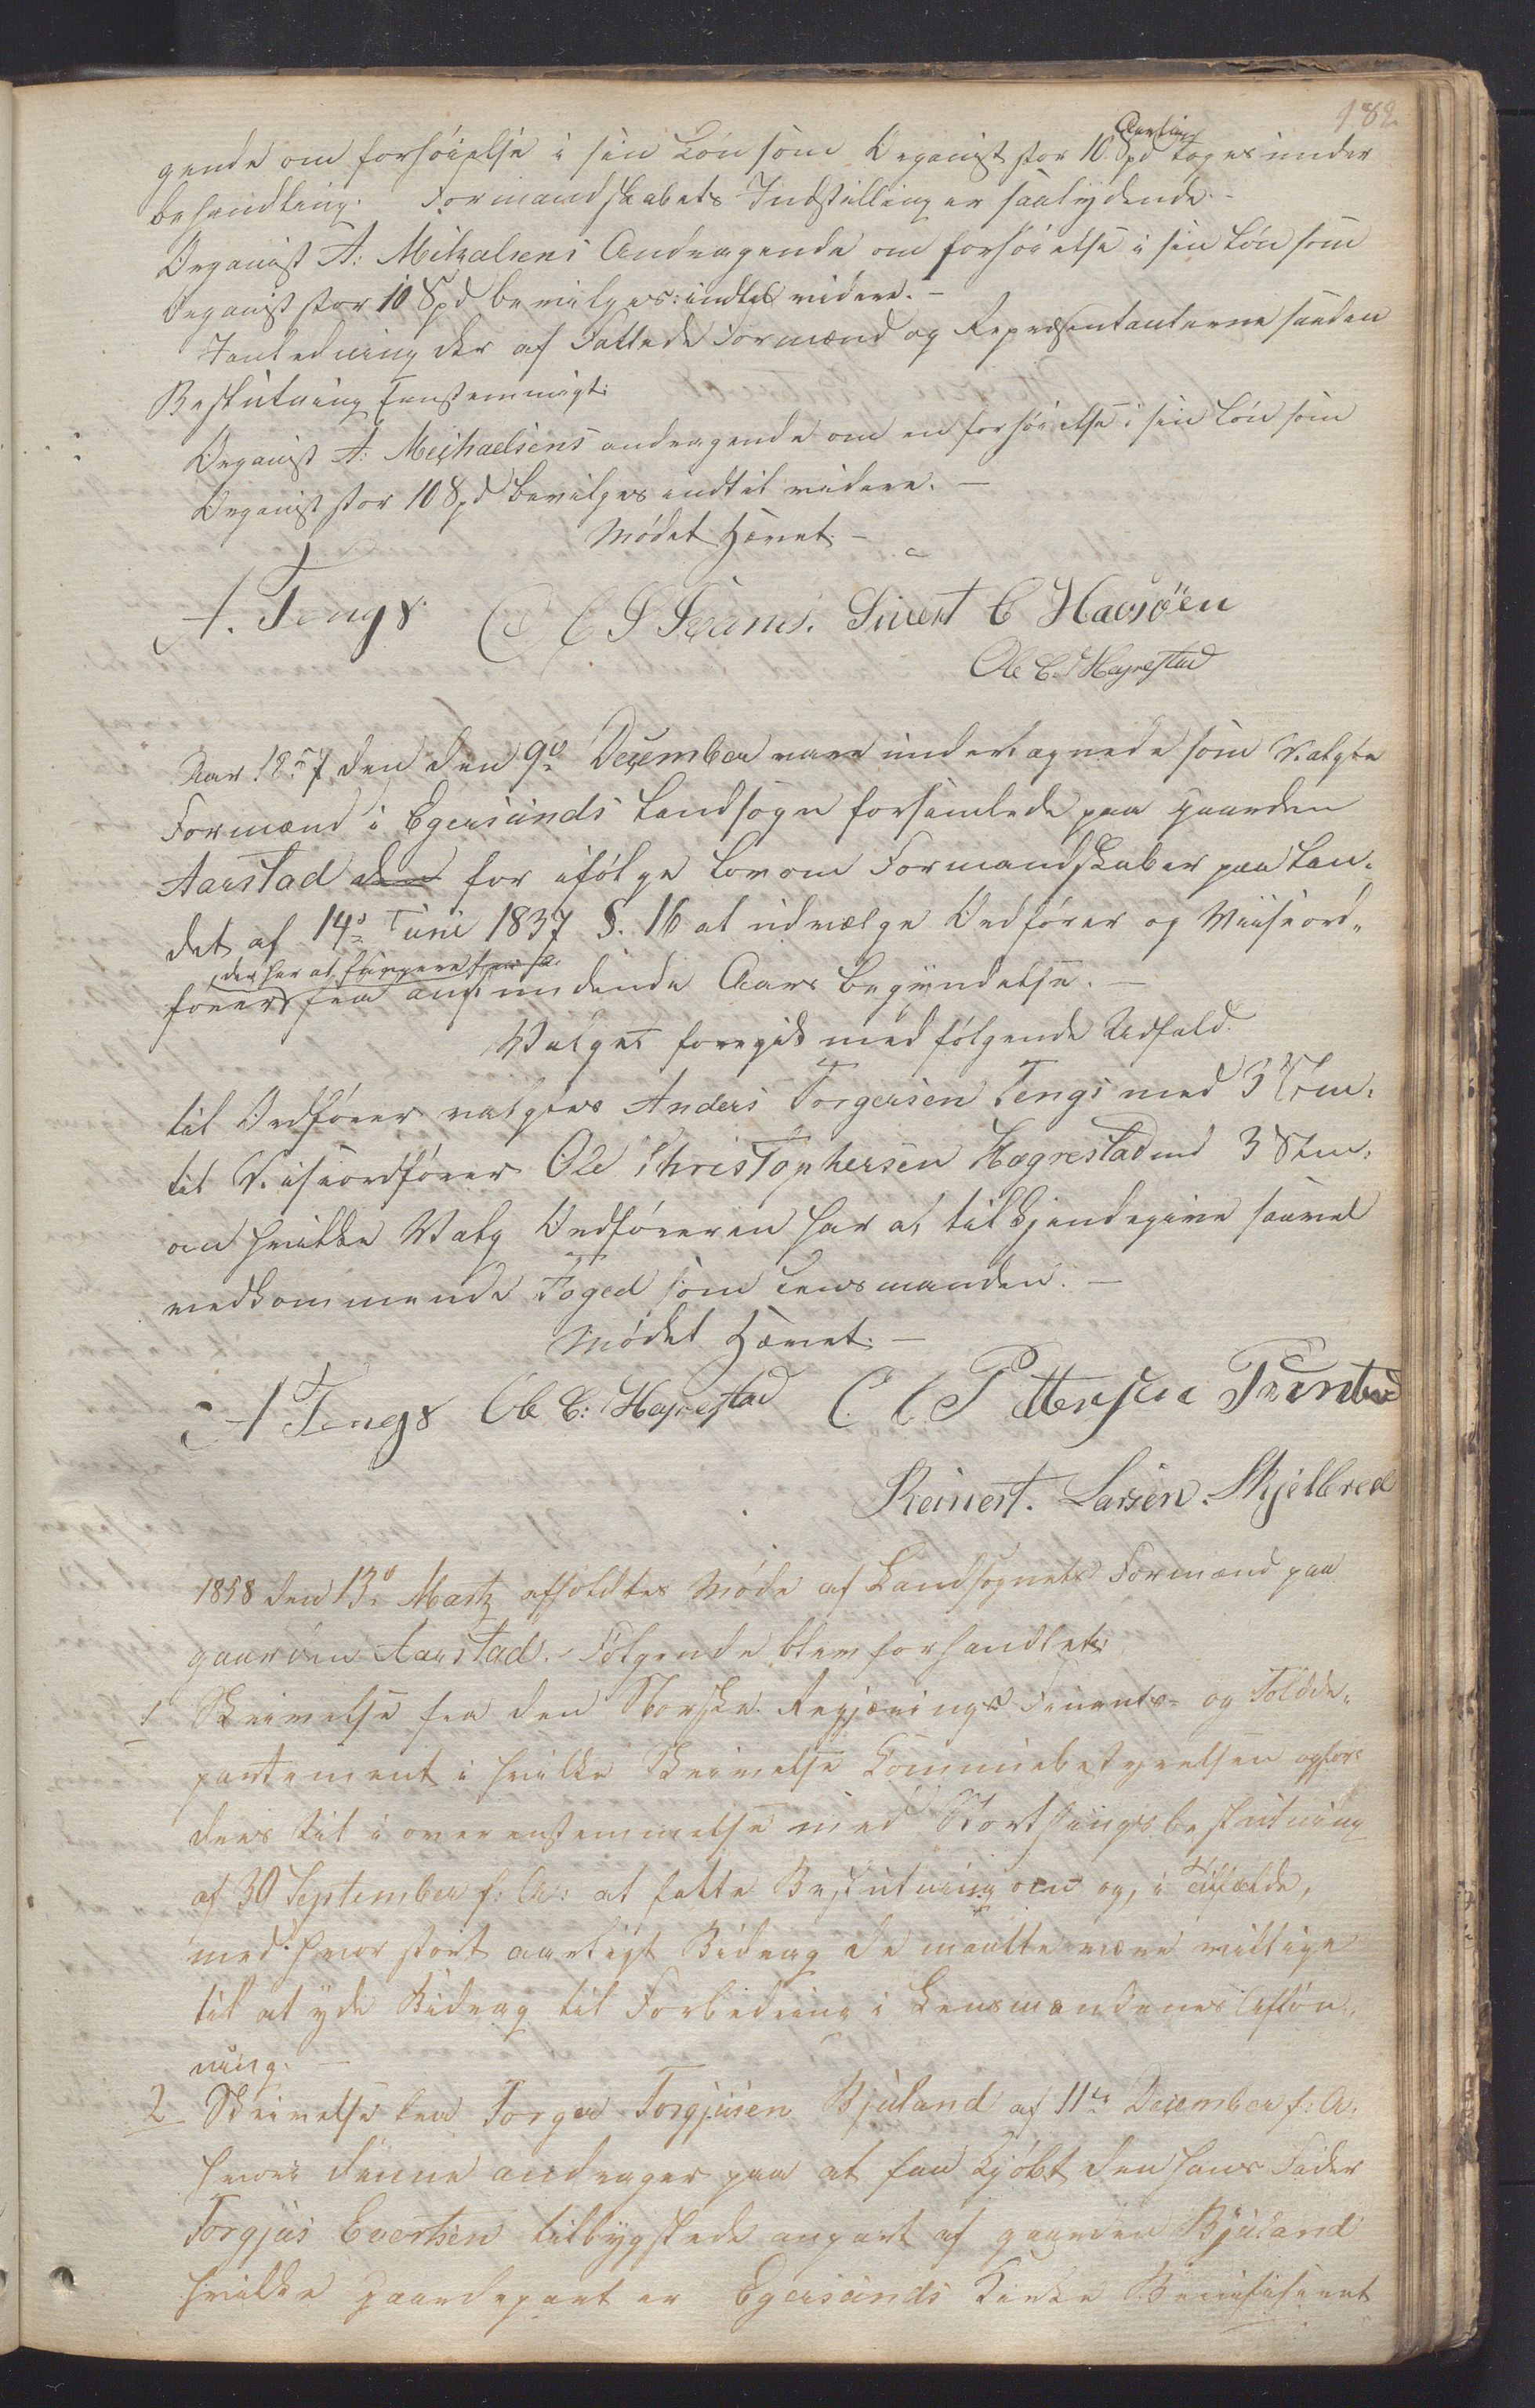 182.
gende om forhøielse i sin Løn som Organist stor 10 Spd Aarling toges under
behandling. Formandskabets Indstilling er saalydende. -
Organist A: Mikalsens Andragende om forhøielse i sin Løn som
Organist stor 10 Spd bevilges: indtil videre. -
I anledning der af Fattede Formænd og Repræsentanterne saadan
Beslutning Eenstemmigt:
Organist A: Meichaelsens andragende om en forhøielse i sin Løn som
Organist stor 10 Spd bevilges indtil videre. -
Mødet Hævet. -
A. Tengs C C P Svanes. Sivert C Havsöen
Ole C. Hagrestad
Aar 1857 den den 9de December vare undertegnede som Valgte
Formænd i Egersunds Landsogn forsamlede paa gaarden
Aarstad den for ifølge Lov om Formandskaber paa Lan-
det af 14de Juni 1837 §. 16 at udvælge Ordfører og Viiseord-
der har at fungere fra
fører fra anstundende Aars begyndelse. -
Valget foregik med følgende Udfald.
til Ordfører valgtes Anders Torgersen Tengs med 3 Stm.
til Viseordfører Ole Christophersen Hægrestad med 3 Stm.
om hvilke Valg Ordføreren har at tilkjendegive saavel
vedkommende Foged som Lensmanden. -
Mødet Hævet. -
A Tengs Ole C: Hagrestad C. C Pettersen
Reinert. Larsen. Skjelbred
1858 den 13de Martz afholdtes Møde af Landsognets Formænd paa
gaarden Aarstad. Følgende blev forhandlet:
1 Skrivelse fra den Norske Regjærings Finants- og Tolddе-
partement i hvilke Skrivelse Communebestyrelsen opfor-
dres til i overensstemmelse med Storthingsbeslutning
af 30 September f: A: at fatte Beslutning om og, i Tilfælde,
med hvor stort aarligt Bidrag de maatte være villige
til at yde Bidrag til Forbedring i Lensmændenes Afløn-
ning. -
2 Skrivelse fra Torger Torgjusen Bjuland af 11te December f: A.
hvori denne andrager paa at faa kjøbt den hans Fader
Torgjus Evertsen tilbygslede anpart af gaarden Bjuland
hvilke gaardepart er Egersunds Kirke Benificeret